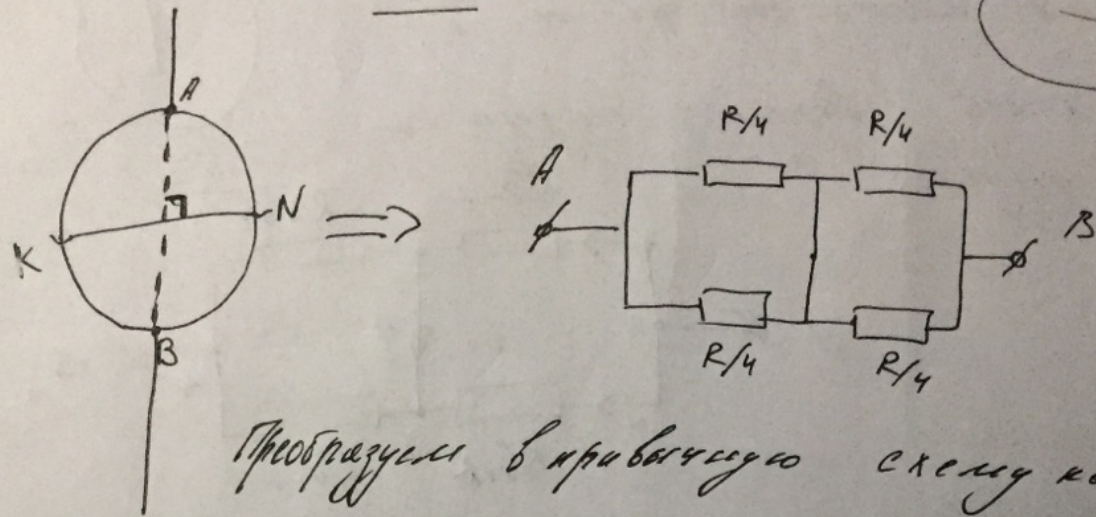 A
N
K
B
A
R/4
R/4
B
R/4
R/4
Преобразуем в привычную схему